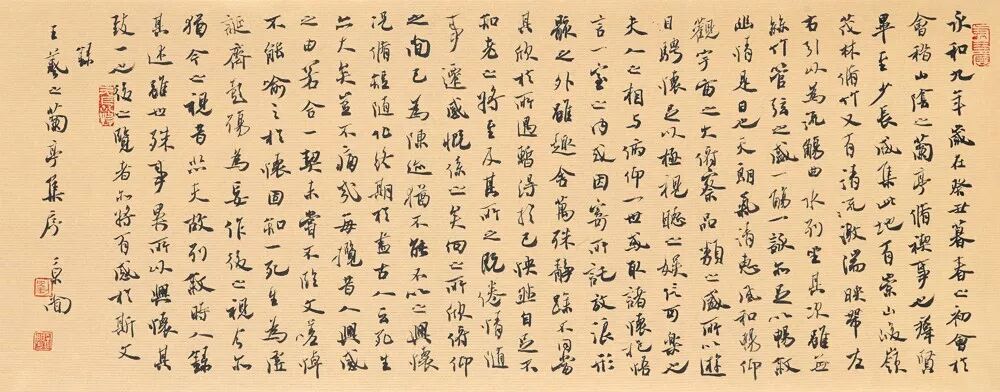 永和九年歲在癸丑暮春之初會於
會稽山陰之蘭亭脩禊事也群賢
畢至少長咸集此地有崇山峻嶺
茂林脩竹又有清流激湍映帶左
右引以為流觴曲水列坐其次雖無
絲竹管弦之盛一觴一詠亦足以暢敘
幽情是日也天朗氣清惠風和暢仰
觀宇宙之大俯察品類之盛所以遊
目騁懷足以極視聽之娛信可樂也
夫人之相與俯仰一世或取諸懷抱悟
言一室之內或因寄所託放浪形
骸之外雖趣舍萬殊靜躁不同當
其欣於所遇暫得於己快然自足不
知老之將至及其所之既倦情隨
事遷感慨係之矣向之所欣俯仰
之間已為陳迹猶不能不以之興懷
況脩短隨化終期於盡古人云死生
亦大矣豈不痛哉每攬昔人興感
之由若合一契未嘗不臨文嗟悼
不能喻之於懷固知一死生為虛
誕齊彭殤為妄作後之視今亦
猶今之視昔悲夫故列敘時人錄
其述雖世殊事異所以興懷其
致一也後之覽者亦將有感於斯文
錄
王羲之蘭亭集序